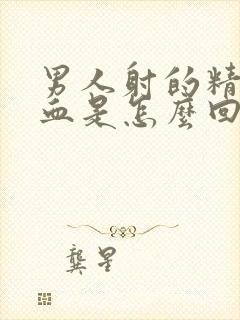 男人射的精
血是怎麼回
龔星